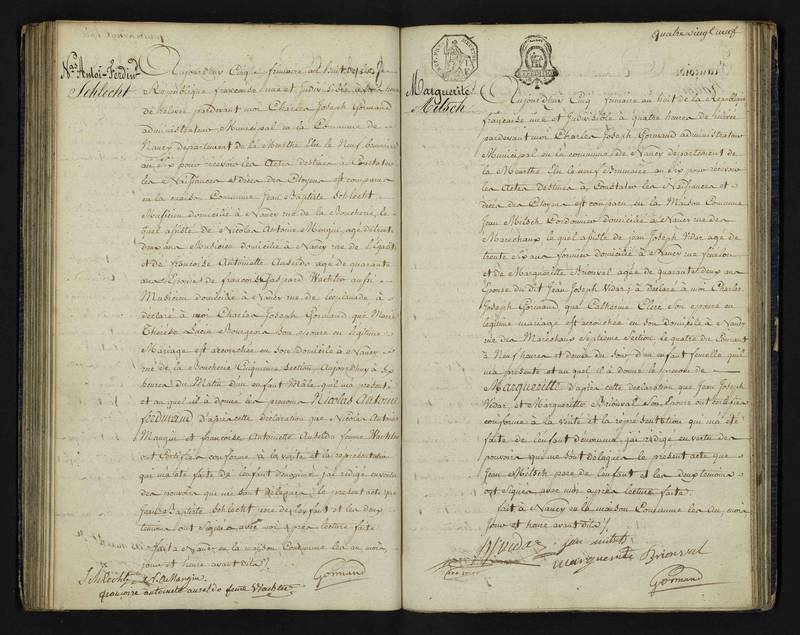 Nas Antoi-Ferdind
Schlecht
Aujourd'huy Cinq frimaire an huit de la
République françoise une et Indivisible à
de relevée pardevant moi Charles Joseph Gormand
administrateur Municipal en la Commune de
Nancy departement de la Meurthe Elu le Neuf brumaire
an Six pour recevoir les Actes destinés à Constater
les Naissances et décès des Citoyens est comparu
en la maison Commune Jean Baptiste Schlecht
Musicien domicilié à Nancy rue de la Boucherie, le
quel assisté de Nicolas Antoine Mangin, agé de
ans Musicien domicilié à Nancy rue de l'Egalité
et de françoise Antoinette Anseldo agée de quarante
ans Epouse de françois Gaspard Wachter aussi
Musicien domicilié à Nancy rue de l'esplanade à
déclaré à moi Charles Joseph Gormand que Marie
Thérèse Lucie Bourgeois Son epouse en légitime
Mariage est accouchée en Son domicile à Nancy
rue de la Boucherie Cinquieme Section, Aujourdhuy à Six
heures du Matin d'un enfant Mâle qu'il ma présenté
et au quel il à donné les prenoms Nicolas Antoine
Ferdinand D'après cette déclaration que Nicolas Antoine
Mangin et françoise Antoinette Anseldo femme Wachter
ont Certifiés conforme à la vérité et la représentation
qui m'a été faite de l'enfant dénommé j'ai rédigé en vertu
des pouvoirs qui me sont délégués, le present acte que
Jean Baptiste Schlecht pere de l'enfant et les deux
témoins ont signés avec moi après lecture faite
fait à Nancy en la maison Commune les an, mois,
jour et heure avant dits
Schlecht N. A. Mangin
françoise antoinette anseldo feme Wachter Gormand
quatre vingt neuf
Marguerite
Mitsch
Aujourd'huy Cinq frimaire an huit de la République
françoise une et Indivisible à quatre heures de relevée
pardevant moi Charles Joseph Gormand administrateur
Municipal en la commune de Nancy departement de
la Meurthe Elu le neuf Brumaire an Six pour recevoir
les Actes destinés à Constater les Naissances et
décès des Citoyens est comparu en la Maison Commune
Jean Mitsch Cordonnier domicilié à Nancy rue des
Marechaux le quel assisté de Jean Joseph Vidar agé de
trente Six ans domicilié à Nancy rue
et de Margueritte Brionval agée de quarante deux ans
Epouse du dit Jean Joseph Vidar, à déclaré à moi Charles
Joseph Gormand que Catherine Clerc Son epouse en
légitime mariage est accouchée en Son domicile à Nancy
rue des Maréchaux Septième Section le quatre du Courant
à Neuf heures et demie du Soir, d'un enfant femelle qu'il
ma présenté et au quel il à donné le prenom de
Margueritte D'après cette déclaration que Jean Joseph
Vidar, et Margueritte Brionval Son Epouse ont certifiés
conforme à la vérité et la représentation qui m'a été
faite de l'enfant dénommé, j'ai rédigé en vertu des
pouvoirs qui me sont délégués le present acte que
Jean Mitsch pere de l'enfant et les deux témoins
ont signés avec moi après lecture faite.
fait à Nancy en la maison Commune les an, mois,
jour et heure avant dits
JJ Vidar jean mitsch
marguerite Brionval
Gormand